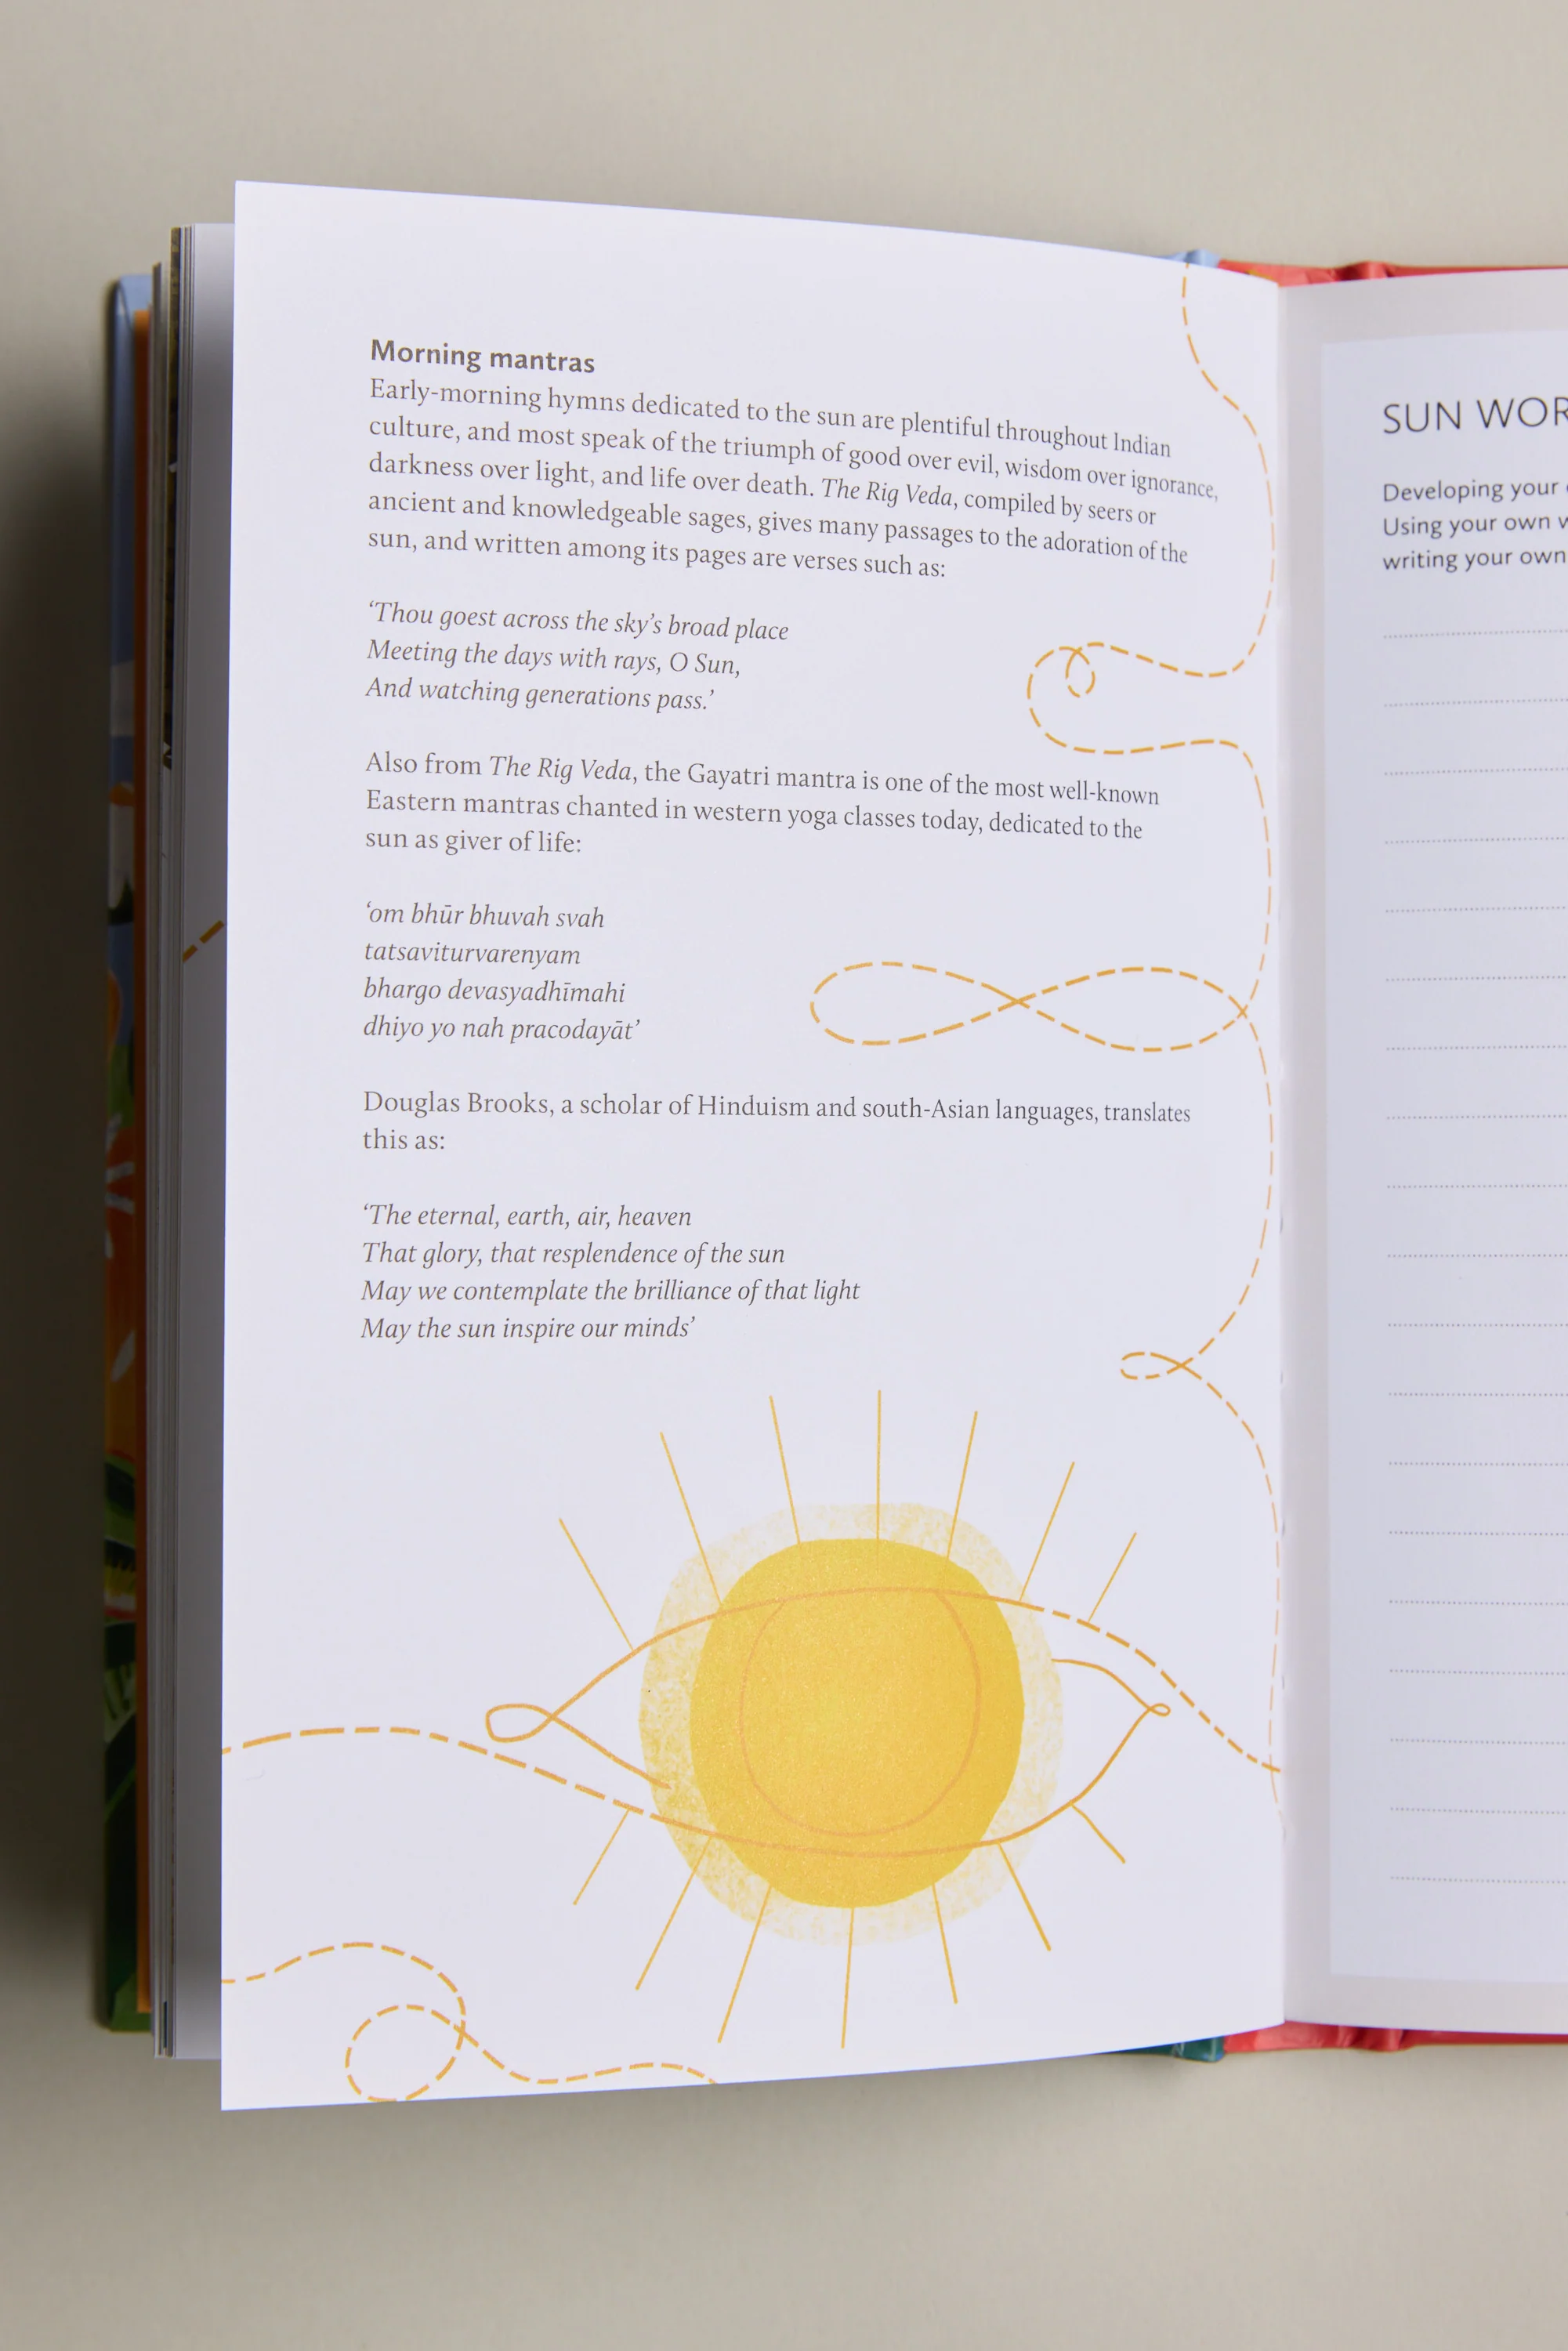 Morning mantras
Early-morning hymns dedicated to the sun are plentiful throughout Indian
culture, and most speak of the triumph of good over evil, wisdom over ignorance,
darkness over light, and life over death. The Rig Veda, compiled by seers or
ancient and knowledgeable sages, gives many passages to the adoration of the
sun, and written among its pages are verses such as:
‘Thou goest across the sky’s broad place
Meeting the days with rays, O Sun,
And watching generations pass.’
Also from The Rig Veda, the Gayatri mantra is one of the most well-known
Eastern mantras chanted in western yoga classes today, dedicated to the
sun as giver of life:
‘om bhūr bhuvah svah
tatsaviturvarenyam
bhargo devasyadhīmahi
dhiyo yo nah pracodayāt’
Douglas Brooks, a scholar of Hinduism and south-Asian languages, translates
this as:
‘The eternal, earth, air, heaven
That glory, that resplendence of the sun
May we contemplate the brilliance of that light
May the sun inspire our minds’
SUN WOR
Developing your
Using your own w
writing your own